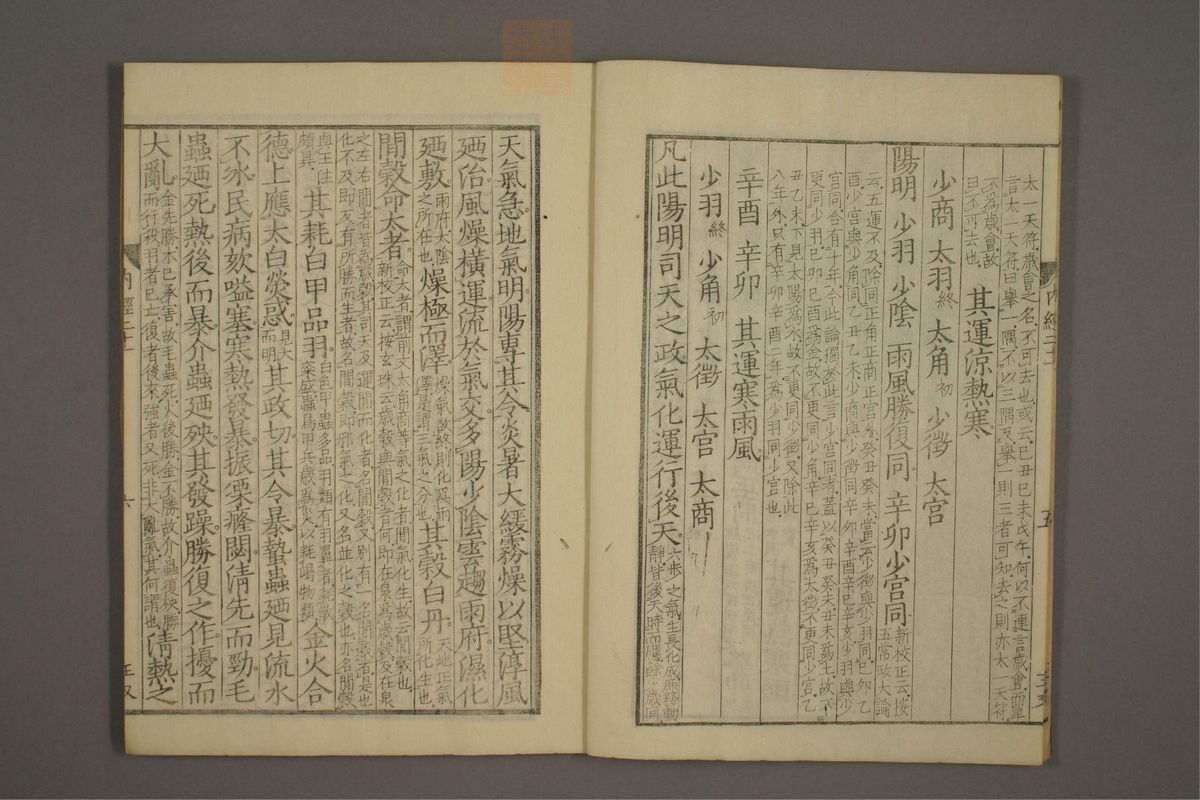 太一天符歲會之名不可去也或云己丑己未戊午何以不連言歲會而單
言太一天符曰舉一隅不以三隅反舉一則三者可知去之則亦太一天符
不爲歲會故
曰不可去也 其運涼熱寒
少商 太羽終 太角初 少徵 太宮
陽明 少羽 少陰 雨風勝復同 辛卯少宮同 新校正云按
五常政大論
云五運不及除同正角正商正宮外癸丑癸未當云少徵與少羽同己卯乙
酉少宮與少角同乙丑乙未少商與少徵同辛卯辛酉辛巳辛亥少羽與少
宮同合有十年今此論獨於此言少宮同者蓋以癸丑癸未丑未爲土故不
更同少羽己卯己酉爲金故不更同少角辛巳辛亥爲太徵不更同少宮乙
丑乙未下見太陽爲水故不更同少徵又除此
八年外只有辛卯辛酉二年爲少羽同少宮也
辛酉 辛卯 其運寒雨風
少羽終 少角初 太徵 太宮 太商
凡此陽明司天之政氣化運行後天 六步之氣生長化成庶務動
靜皆後天時而應餘少歲同
天氣急地氣明陽專其令炎暑大緩霧燥以堅淳風
廼治風燥橫運流於氣交多陽少陰雲趨雨府濕化
廼敷 雨府太陰
之所在也 燥極而澤 燥氣欲終則化爲雨
澤是謂三氣之分也 其穀白丹 天地正氣
所化生也
間穀命太者 命太者謂前文太角商等氣之化者間氣化生故云間穀也
新校正云按玄珠云歲穀與間穀者何即在泉爲歲穀及在泉
之左右間者皆爲歲穀其司天及運間而化者名間穀又別有一名間穀者是也
化不及即反有所勝而生者故名間穀即邪氣之化又名並化之穀也亦名間穀
與王注
頗異 其耗白甲品羽 白色甲蟲多品羽類有羽翼者耗散
粢盛蟲鳥甲兵歲爲災以耗竭物類 金火合
德上應太白熒惑 見大
而明 其政切其令暴蟄蟲廼見流水
不冰民病欬嗌塞寒熱發暴振凓癃閟淸先而勁毛
蟲廼死熱後而暴介蟲廼殃其發躁勝復之作擾而
大亂 金先勝木已承害故毛蟲死火後勝金不勝故介蟲復殃勝
而行殺羽者已亡復者後來強者又死非大亂氣其何謂也 淸熱之
內經二十一
五
內經二十一
六